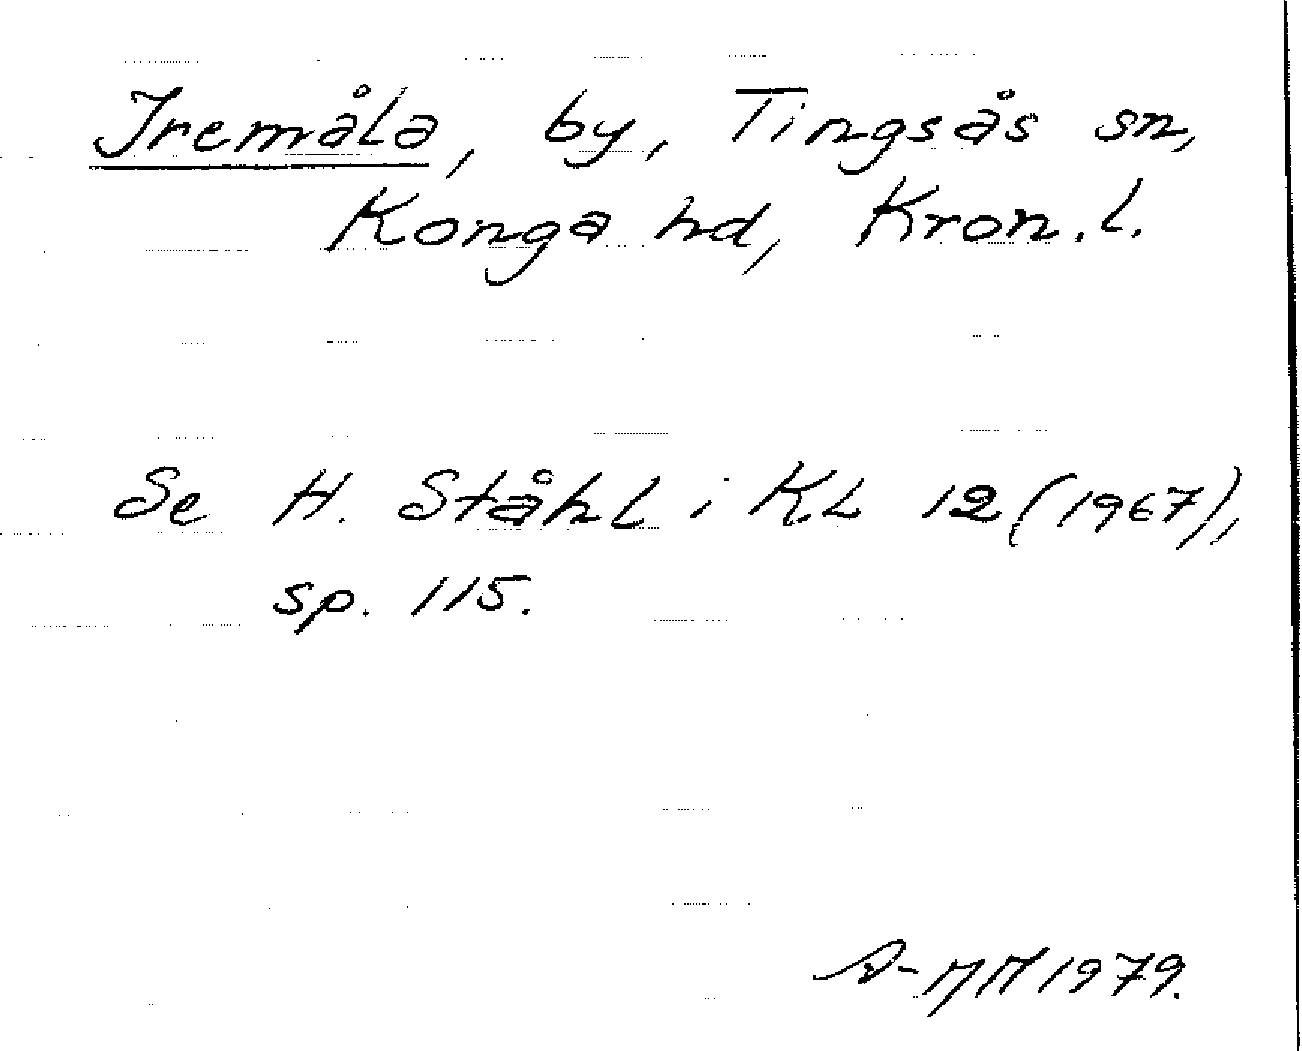 Iremåla, by, Tingsås sn,
Konga hd, Kron.l.
Se H. Ståhl i KL 12 (1967),
sp. 115.
1979.